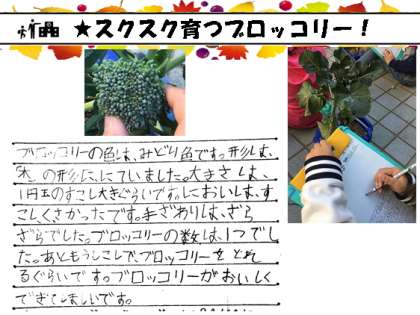 ★スクスク育つブロッコリー！
ブロッコリーの色は、みどり色です。形は、
木の形ににていました。大きさは、
1円玉のすこし大きぐらいです。においは、す
こしくさかったです。手ざわりは、ざら
ざらでした。ブロッコリーの数は、1つでし
た。あともうしこしで、ブロッコリーをとれ
るぐらいです。ブロッコリーがおいしく
できてほしいです。